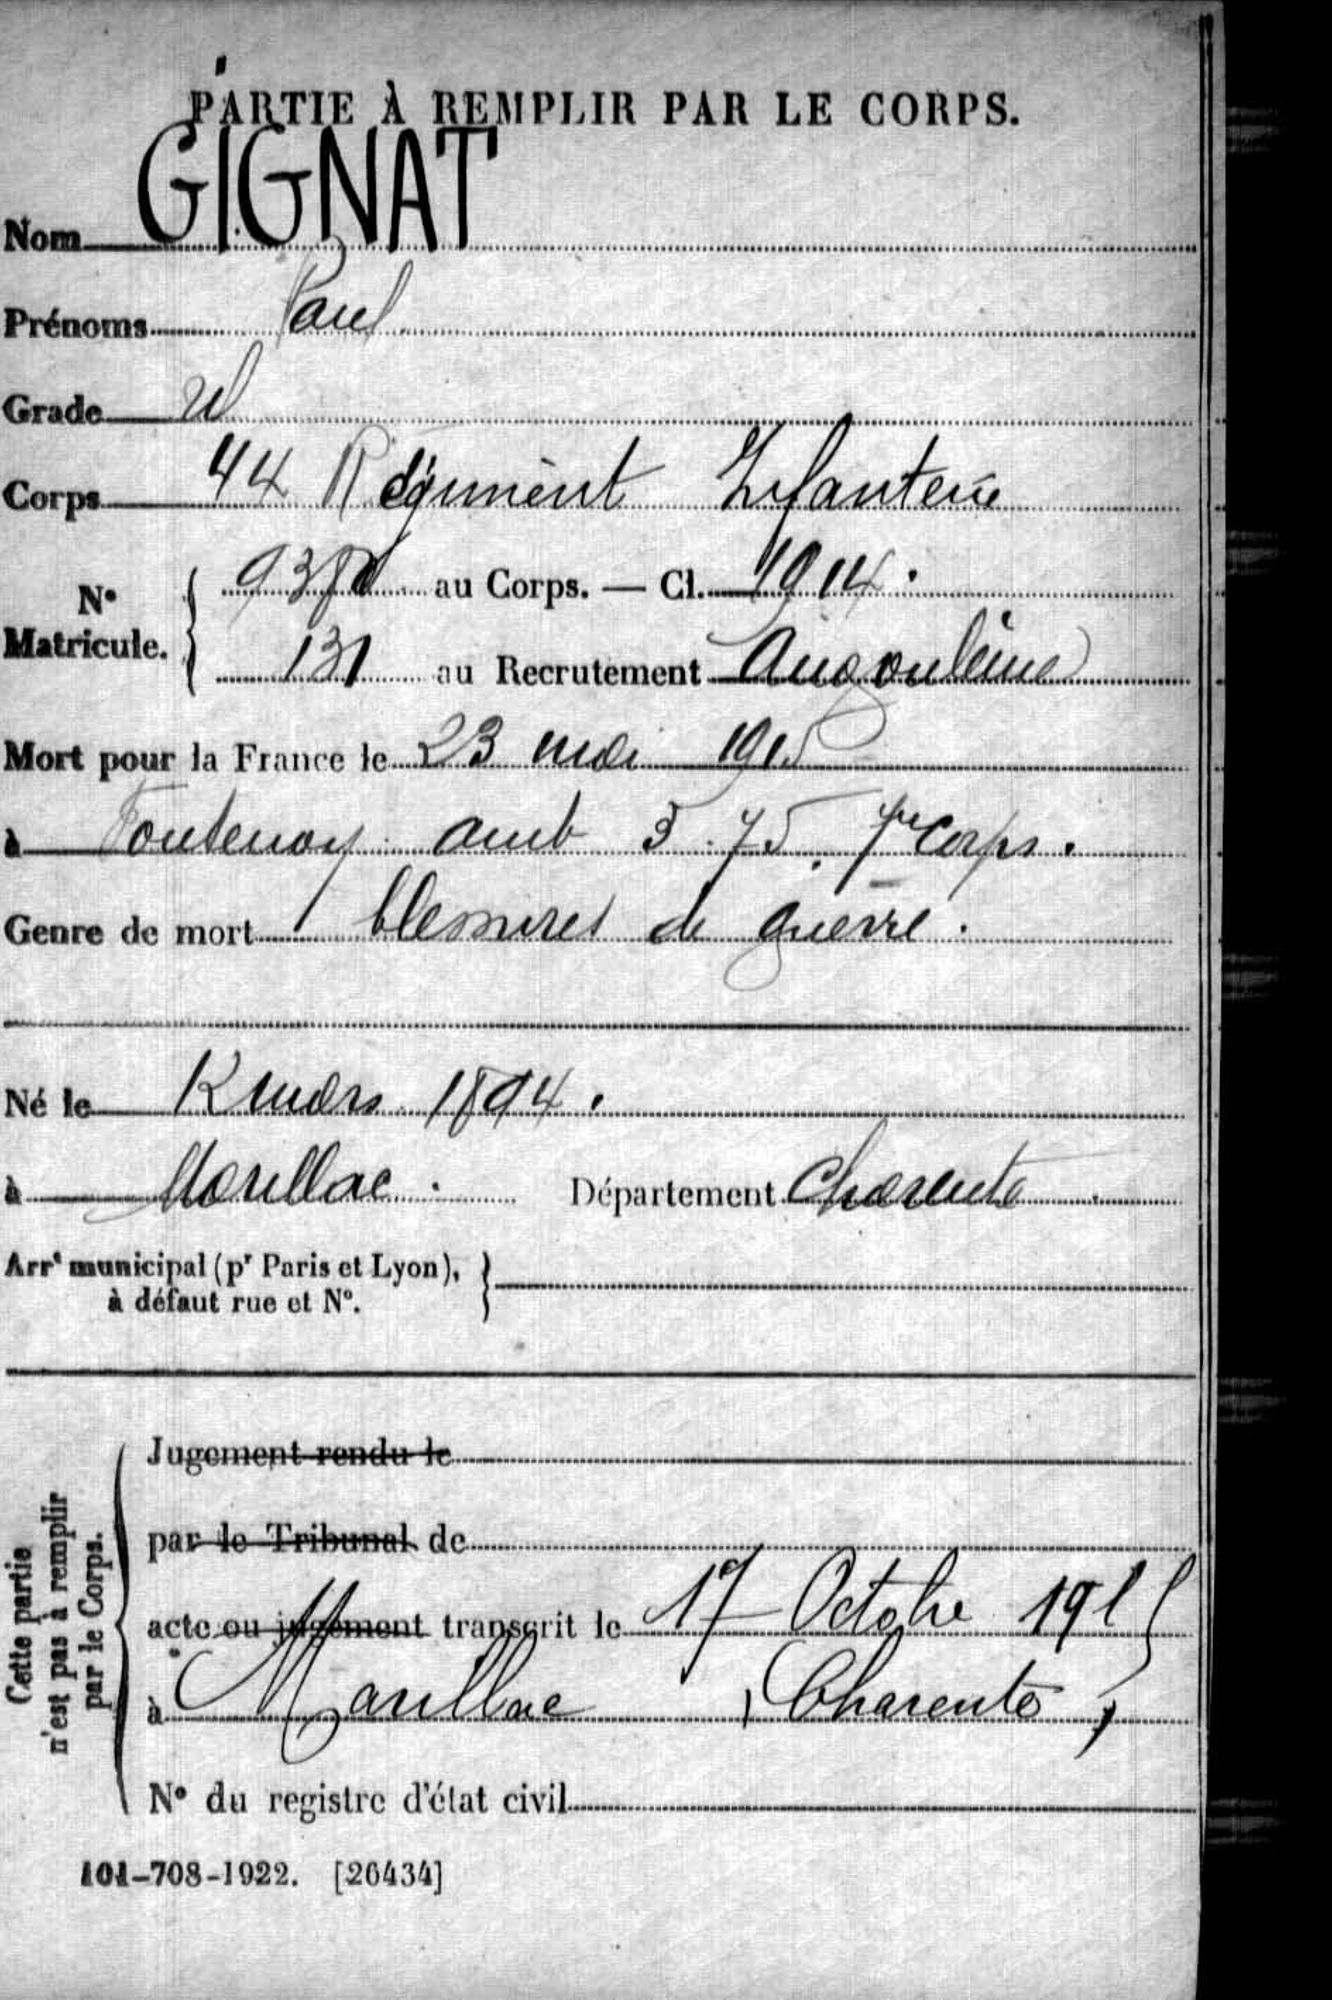 PARTIE À REMPLIR PAR LE CORPS.
Nom GIGNAT
Prénoms Paul
Grade
Corps 44 Régiment Infanterie
N° Matricule. au Corps. — Cl. 1914.
131 au Recrutement Angoulême
Mort pour la France le 23 mai 1915
à Fontenoy amb 3.75. 7e Corps.
Genre de mort blessures de guerre.
Né le mars 1894.
à Marillac. Département Charente.
Arrt municipal (pr Paris et Lyon),
à défaut rue et N°.
Cette partie
n'est pas à remplir
par le Corps.
Jugement rendu le
par le Tribunal de
acte ou jugement transcrit le 17 Octobre 1915
à Marillac (Charente)
N° du registre d'état civil
101-708-1922. [26434]